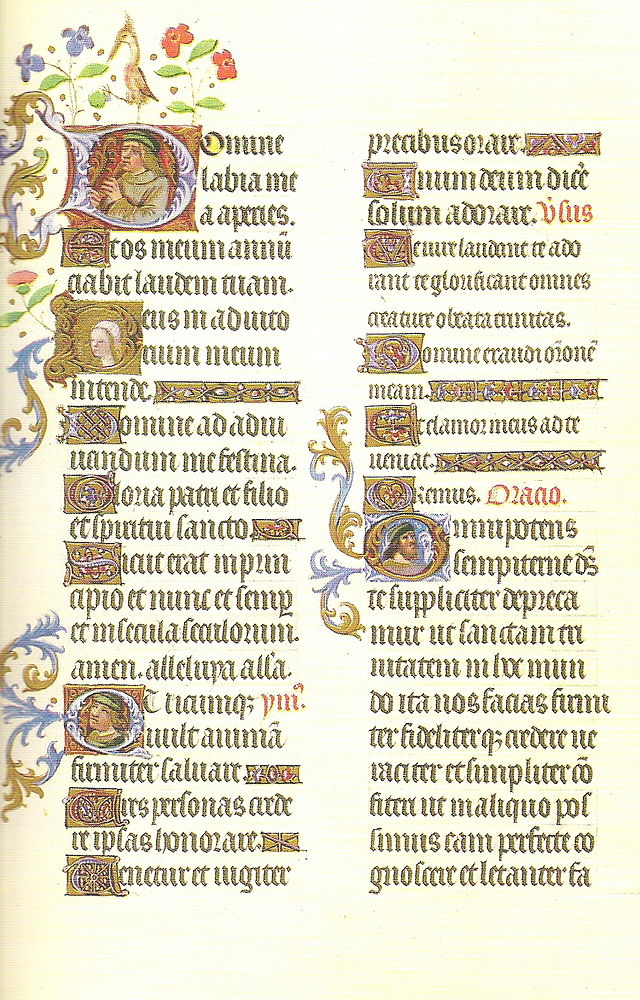 Domine
labia me
a aperies.
Et os meum annū
ciabit laudem tuam.
Deus in adiuto
rium meum
intende.
Domine ad adiu
uandum me festina.
Gloria patri et filio
et spiritui sancto.
Sicut erat in prin
cipio et nunc et semp
et in secula seculorum.
amen. alleluya alla.
Quicumqꝫ ymꝰ.
uult animā
firmiter saluare.
Tres personas crede
re ipsas honorare.
Tenetur et iugiter
precibus orare.
Unum deum dicē
solum adorare. Vsus
Te iure laudant te ado
rant te glorificant omnes
creature o beata trinitas.
Domine exaudi orōnē
meam.
Et clamor meus ad te
ueniat.
Oremus. Oracio.
Omnipotens
sempiterne ds̄
te suppliciter depreca
mur ut sanctam tri
nitatem in hoc mun
do ita nos facias firmi
ter fideliterqꝫ credere ue
raciter et simpliciter cō
fiteri ut in aliquo pos
simus eam perfecte co
gnoscere et letanter fa